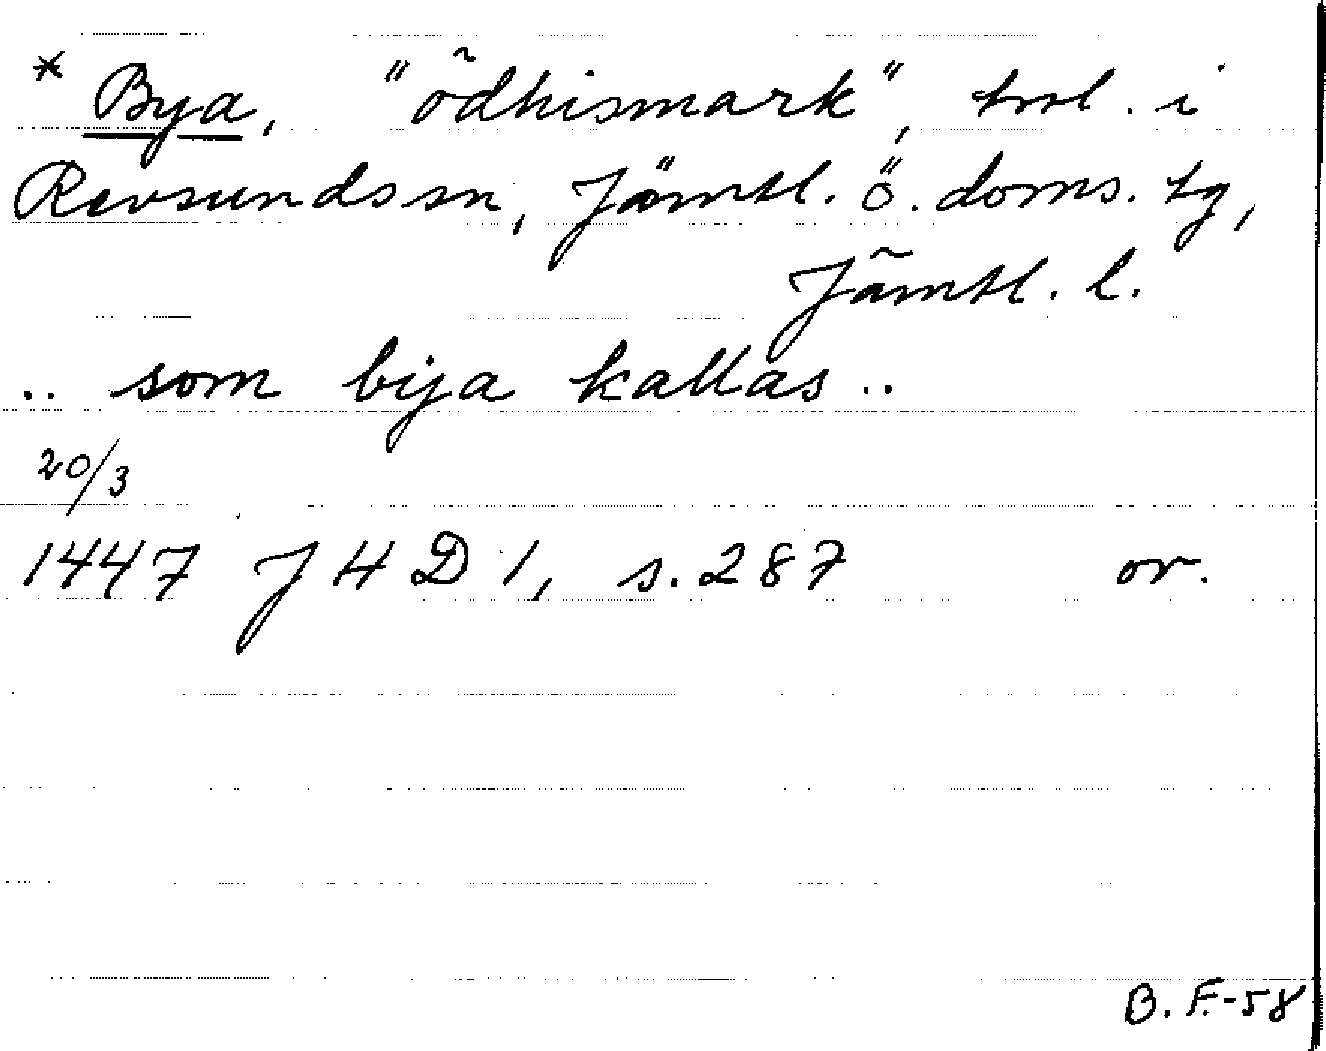 * Bya, "ödhismark", trol. i
Revsunds sn, Jämtl. ö. doms. tg,
Jämtl. l.
.. som bija kallas ..
20/3
1447 J H D 1, s. 287 or.
B. F.-58